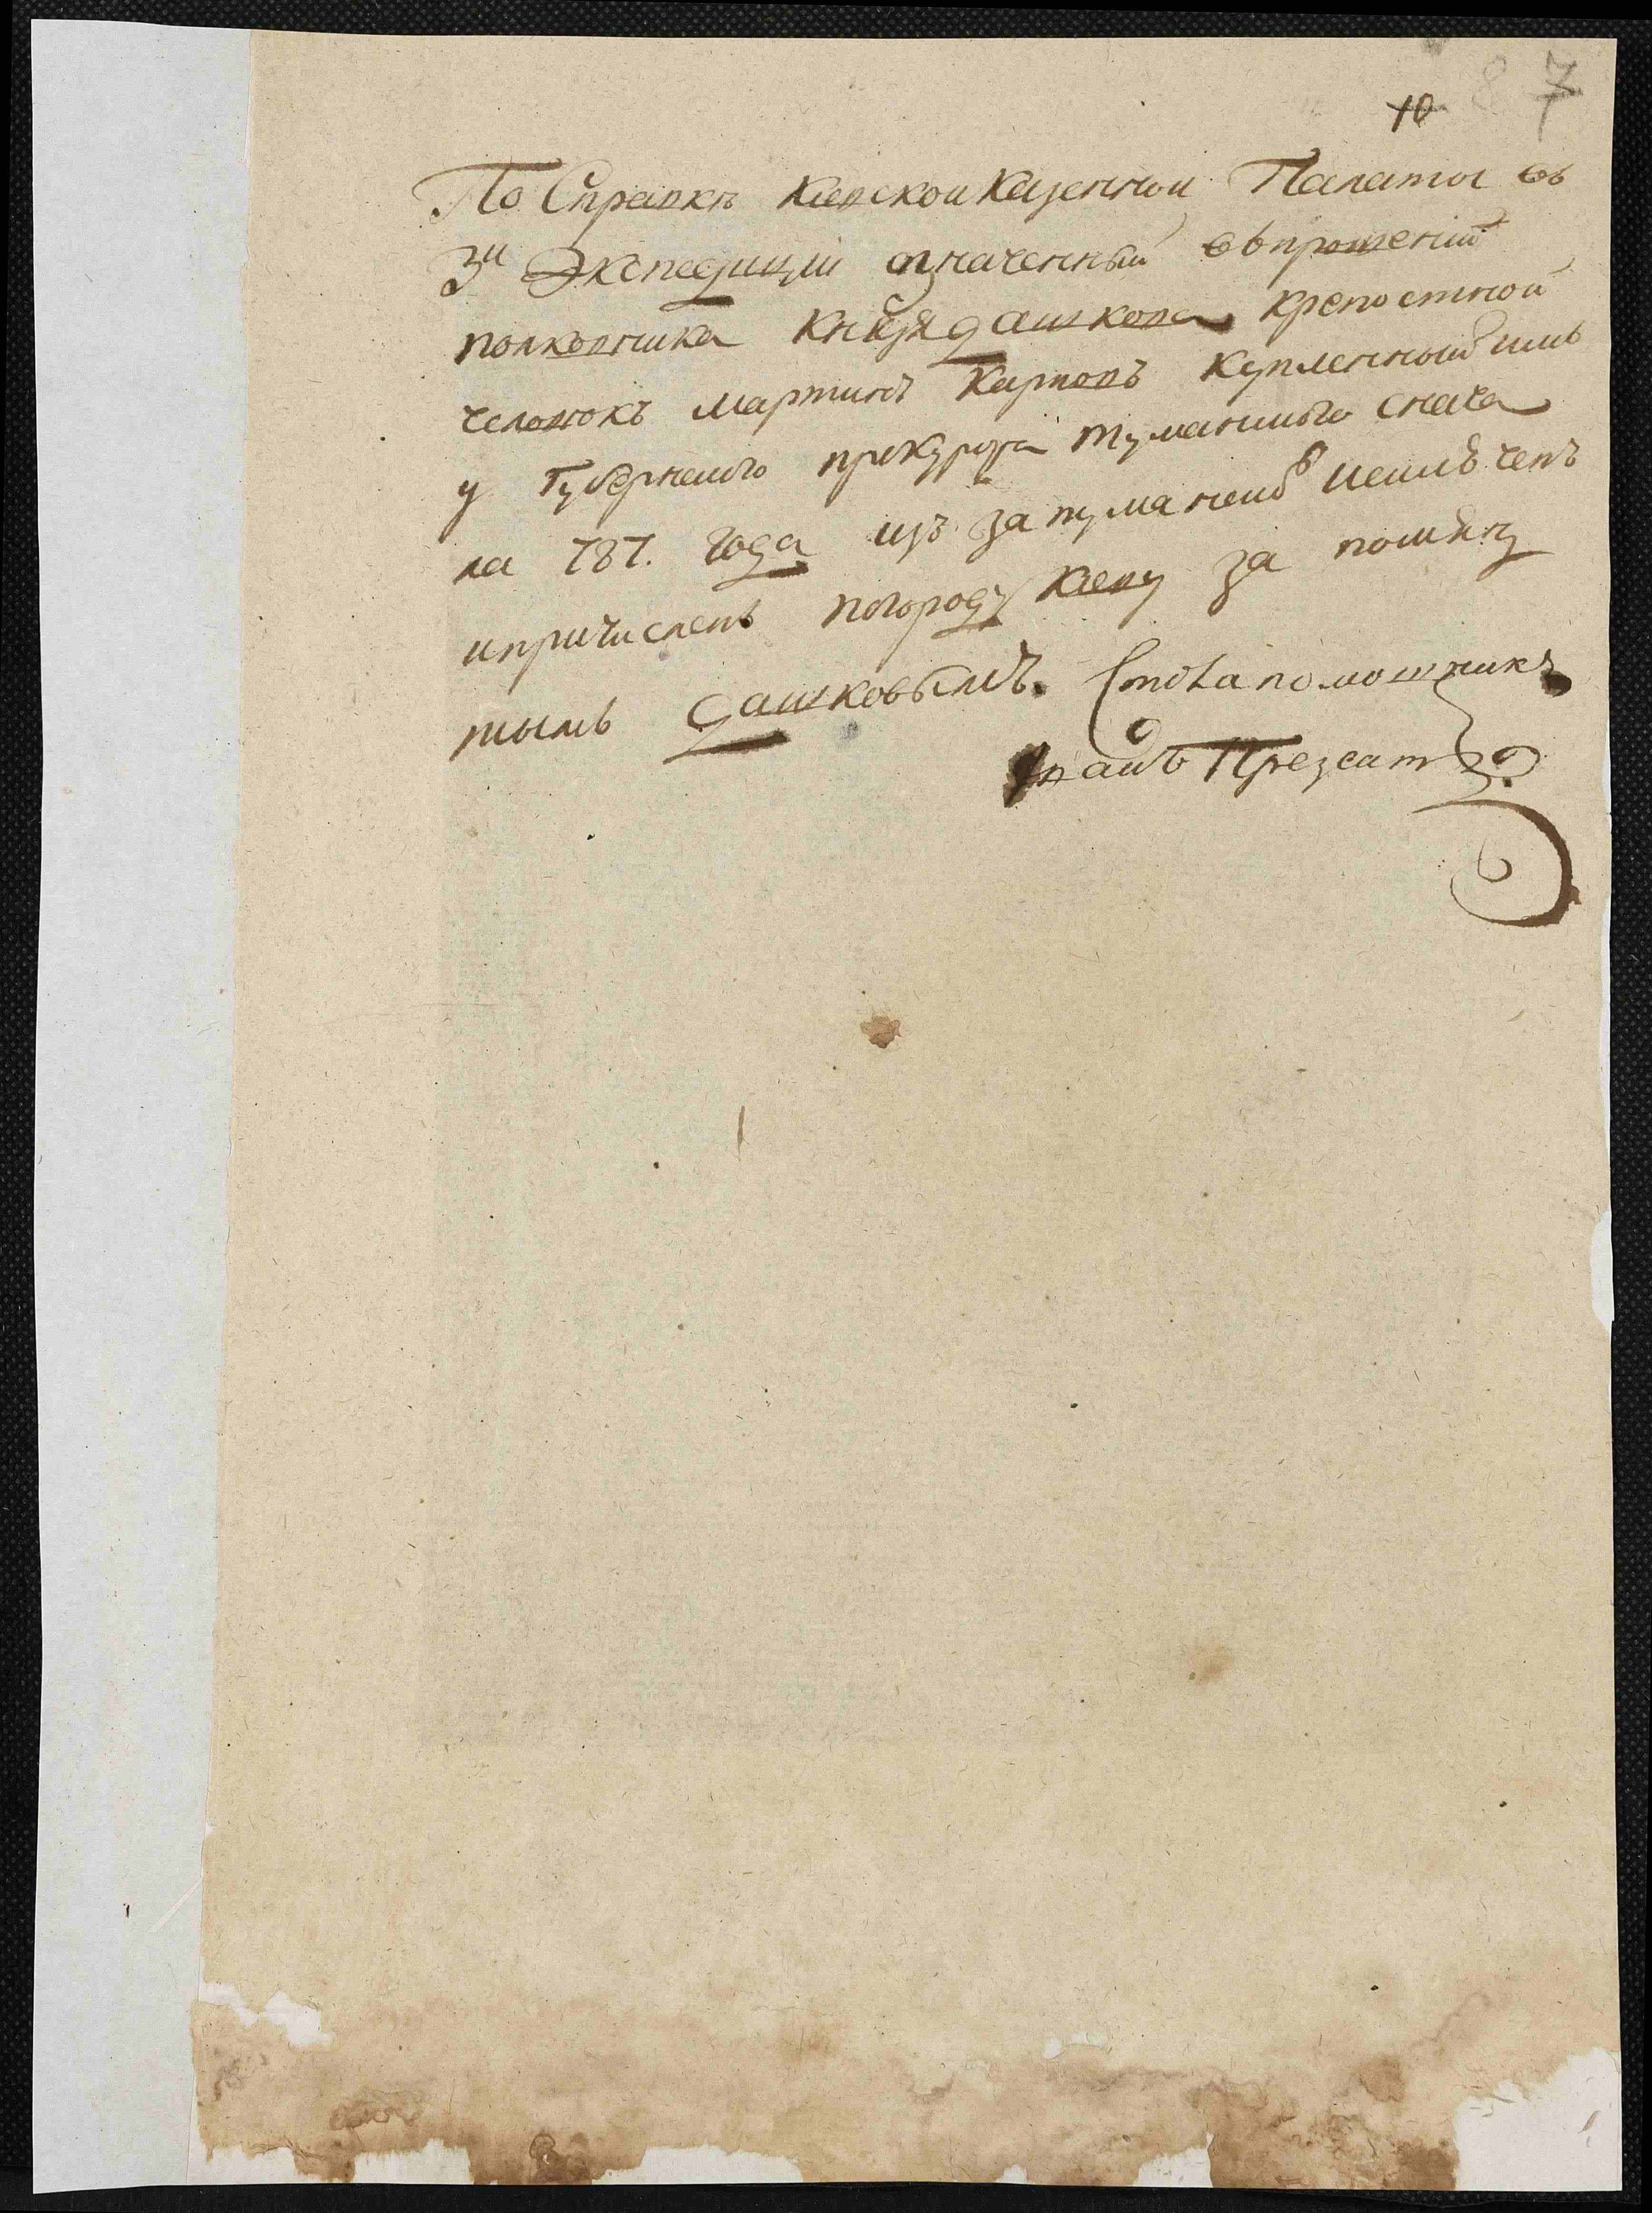 10 8 7
По Справкѣ Киевской Казенной Палаты въ
3й Экспедиции означенный въ прошений
полковника Князя дашкова крепостной
человѣкъ Мартинъ Карповъ купленный имъ
у Губернского прокурора Туманского снача
ла 787. года изъ за туманского исключенъ
и причисленъ по городу Киеву за помян
тымъ дашковымъ. Стола помошникъ
Иванъ